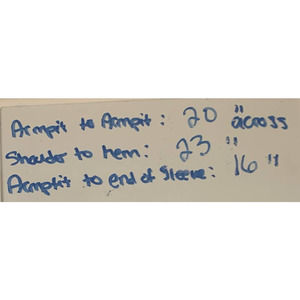 Armpit to Armpit: 20" across
Shoulder to hem: 23"
Armpit to end of Sleeve: 16"